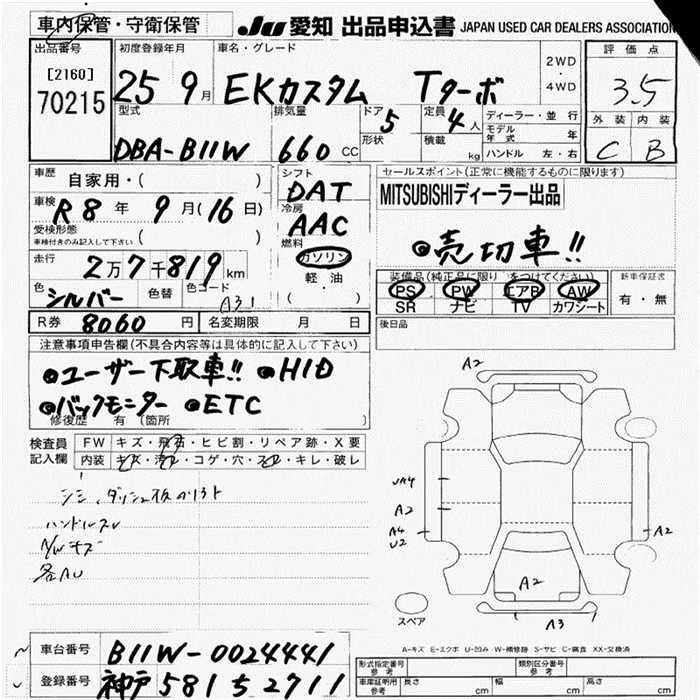 車内保管・守衛保管
JU 愛知 出品申込書 JAPAN USED CAR DEALERS ASSOCIATION
出品番号 初度登録年月 車名・グレード 2WD・4WD 評価点
[2160]
70215 25 9月 EKカスタム Tターボ 3.5
型式 排気量 ドア 5 定員 4人 ディーラー・並行 外装 内装
形状 積載 kg モデル年式 年
DBA-B11W 660 CC ハンドル 左・右 C B
車歴 自家用・( ) シフト DAT セールスポイント(正常に機能するものに限ります)
車検 R8年 9月(16日) 冷房 AAC MITSUBISHIディーラー出品
受検形態 ( )
車検付きのみ記入して下さい
燃料 ガソリン ◎売切車!!
走行 2万7千819km 軽・油
装備品(純正品に限り○をつけてください) 新車保証書
色 シルバー 色替 色コード A31 ( ) PS PW エアB AW 有・無
SR ナビ TV カワシート
R券 8060円 名変期限 月 日 後日品
注意事項申告欄(不具合内容等は具体的に記入して下さい)
◎ユーザー下取車!! ◎HID
◎バックモニター ◎ETC
修復歴 有 (箇所 )
検査員記入欄 FW キズ・飛石・ヒビ割・リペア跡・X要
内装 キズ・汚れ・コゲ・穴・スレ・キレ・破れ
シミ、ダッシュ板のリフト
ハンドルスレ
A/Wキズ
各AU
A2
UA4
A2
A4
U2
A2
A2
A3
スペア
A-キズ E-エクボ U-凹み W-補修跡 S-サビ C-腐食 XX-交換済
車台番号 B11W-0024441
登録番号 神戸 581 ち 2711
形式指定番号 参考 類別区分番号 参考
車庫証明用 参考 長さ cm 幅 cm 高さ cm